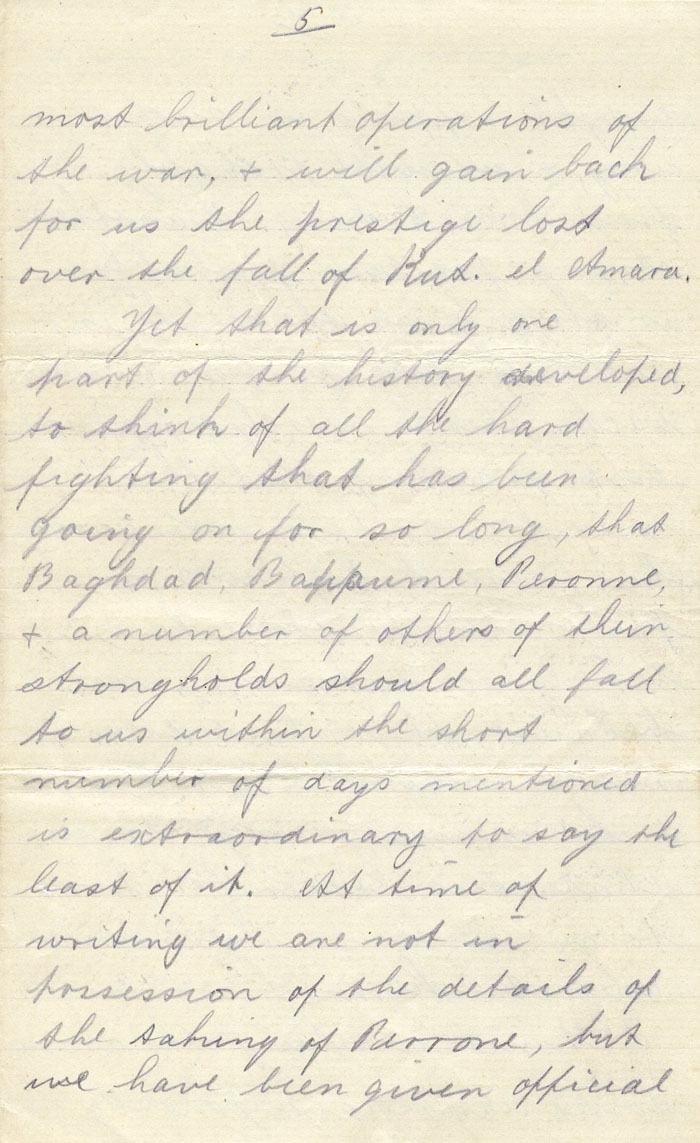 5
most brilliant operations of
the war, + will gain back
for us the prestige lost
over the fall of Kut. el Amara.
Yet that is only one
part of the history developed,
to think of all the hard
fighting that has been
going on for so long, that
Baghdad, Bappaume, Peronne,
+ a number of others of their
strongholds should all fall
to us within the short
number of days mentioned
is extraordinary to say the
least of it. At time of
writing we are not in
possession of the details of
the taking of Perrone, but
we have been given official